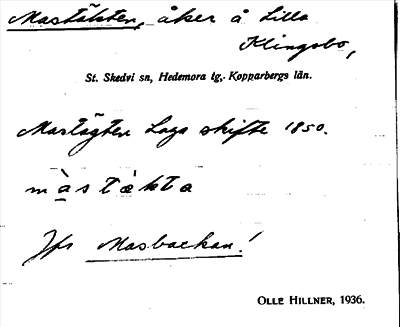 Mastäkten, åker å Lilla
Klingsbo,
St. Skedvi sn, Hedemora tg, Kopparbergs län.
Mastägten Laga skifte 1850.
màstä̀kta
Jfr Masbackan!
OLLE HILLNER, 1936.